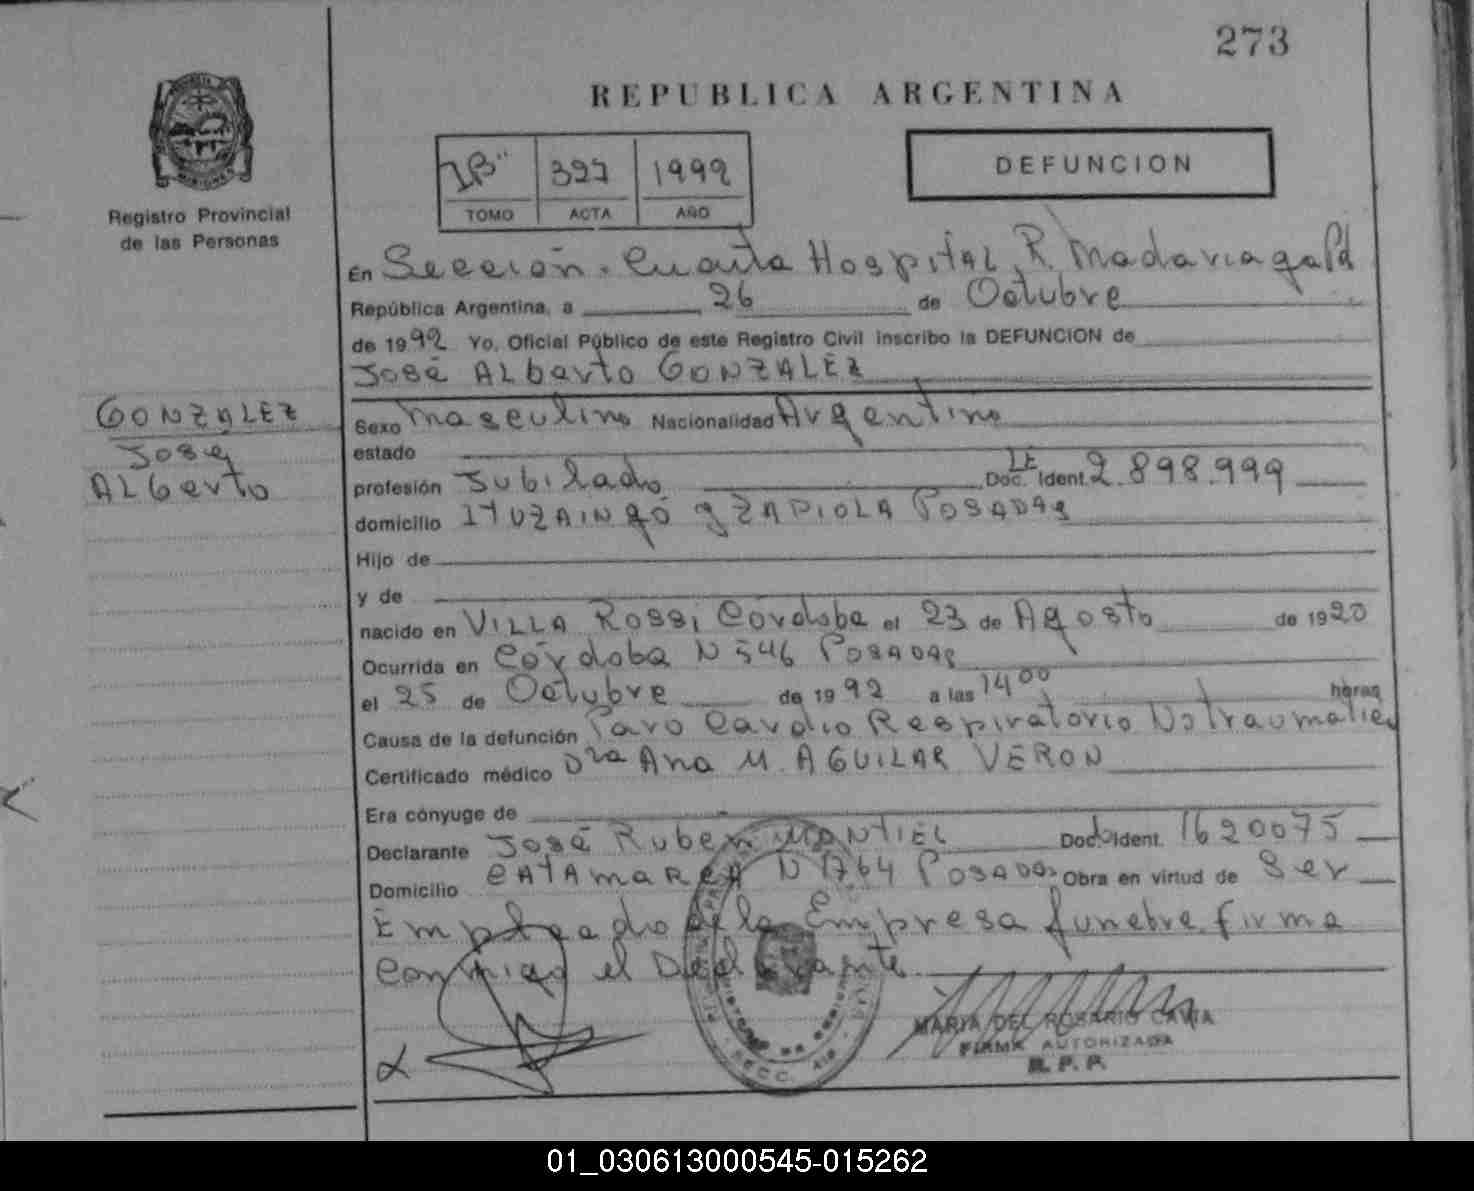 273
REPUBLICA ARGENTINA
DEFUNCION
1B" 397 1992
TOMO ACTA AÑO
Registro Provincial
de las Personas
En Sección Cuarta Hospital R. Madariaga Pd
República Argentina, a 26 de Octubre
de 1992 Yo, Oficial Público de este Registro Civil inscribo la DEFUNCION de
José ALberto GONZALEZ
GONZALEZ
José
ALberto
Sexo Masculino Nacionalidad Argentino
estado
profesión Jubilado Doc. Ident. LE 2.898.999
domicilio ITUZAINGÓ y ZAPIOLA POSADAS
Hijo de
y de
nacido en VILLA ROSSI Córdoba el 23 de Agosto de 1920
Ocurrida en Córdoba N 546 POSADAS
el 25 de Octubre de 1992 a las 14 00 horas
Causa de la defunción Paro Cardio Respiratorio No traumatico
Certificado médico Dra Ana M. AGUILAR VERON
Era cónyuge de
Declarante José Ruben MONTIEL Doc. Ident. 1620075
Domicilio CATAMARCA N 1764 POSADAS Obra en virtud de Ser
Empleado de la Empresa funebre firma
conmigo el Declarante
MARIA DEL ROSARIO CAVIA
FIRMA AUTORIZADA
R. P. P.
01_030613000545-015262